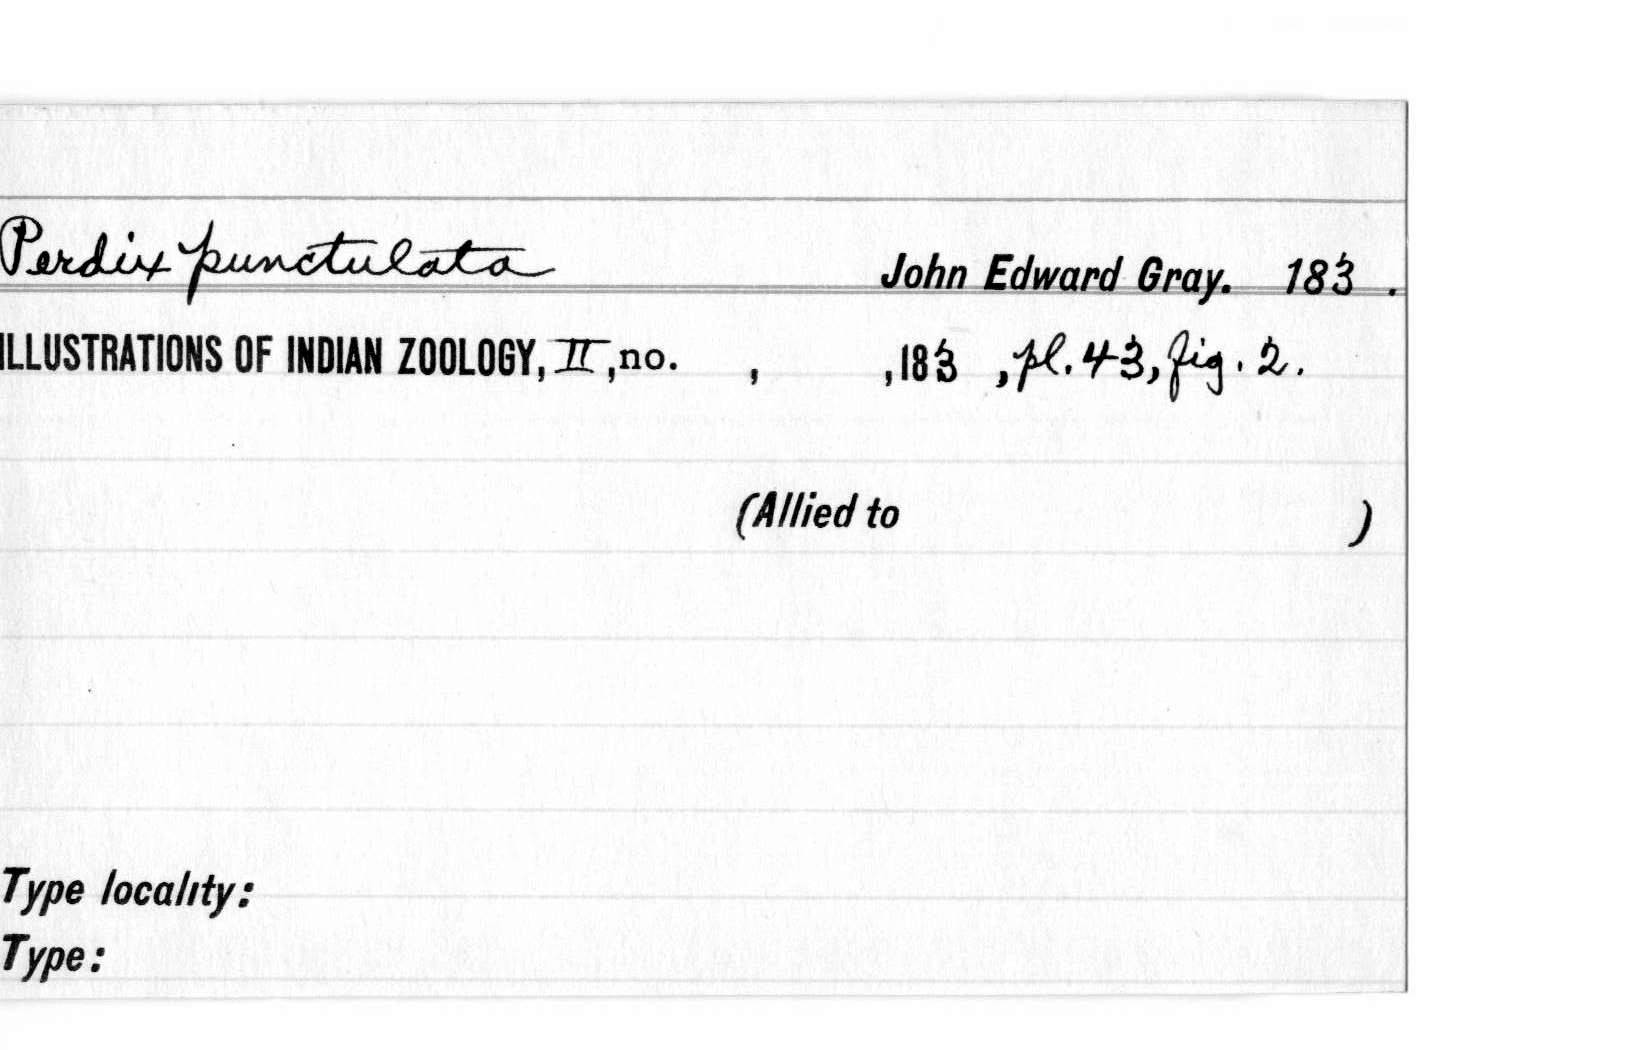 Perdix punctulata John Edward Gray. 183 .
ILLUSTRATIONS OF INDIAN ZOOLOGY, II, no. , , 183 , pl. 43, fig. 2.
(Allied to )
Type locality:
Type: